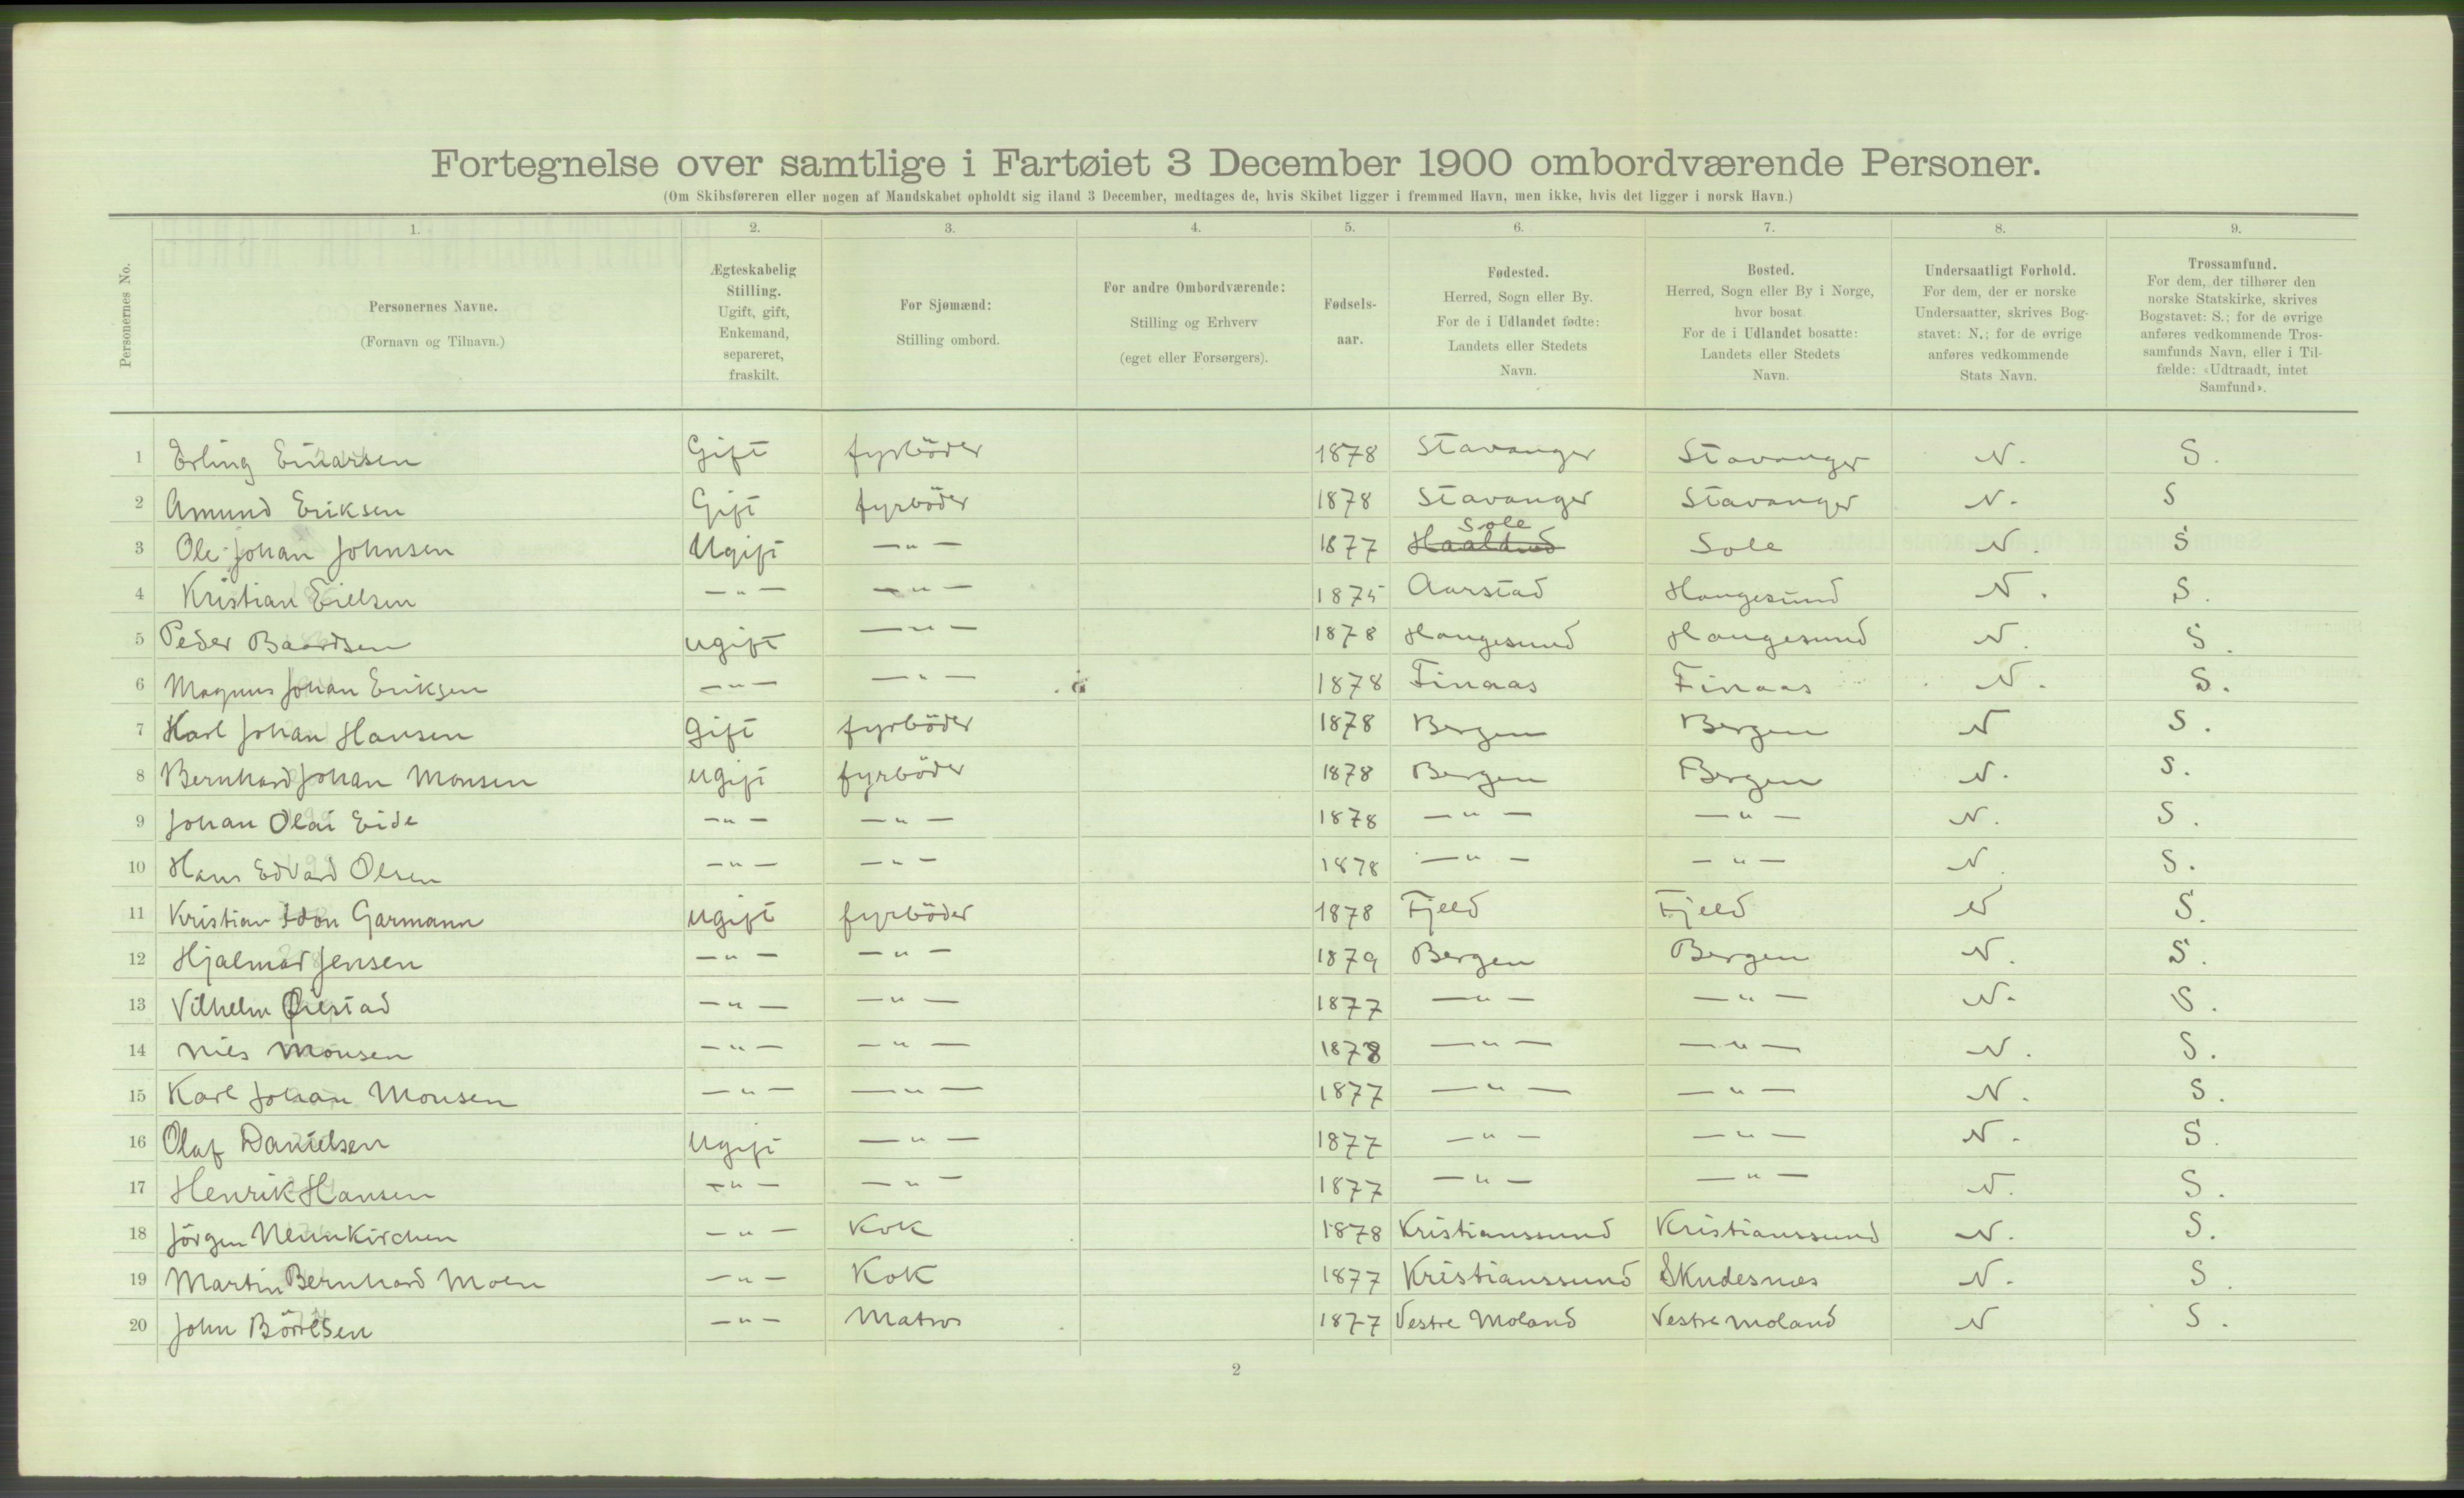 Fortegnelse over samtlige i Fartøiet 3 December 1900 ombordværende Personer.
(Om Skibsføreren eller nogen af Mandskabet opholdt sig iland 3 December, medtages de, hvis Skibet ligger i fremmed Havn, men ikke, hvis det ligger i norsk Havn.)
Personernes No.
1. 2. 3. 4. 5. 6. 7. 8. 9.
Personernes Navne.
(Fornavn og Tilnavn.)
Ægteskabelig
Stilling.
Ugift, gift,
Enkemand,
separeret,
fraskilt.
For Sjømænd:
Stilling ombord.
For andre Ombordværende:
Stilling og Erhverv
(eget eller Forsørgers).
Fødsels-
aar.
Fødested.
Herred, Sogn eller By.
For de i Udlandet fødte:
Landets eller Stedets
Navn.
Bosted.
Herred, Sogn eller By i Norge,
hvor bosat
For de i Udlandet bosatte:
Landets eller Stedets
Navn.
Undersaatligt Forhold.
For dem, der er norske
Undersaatter, skrives Bog-
stavet: N.; for de øvrige
anføres vedkommende
Stats Navn.
Trossamfund.
For dem, der tilhører den
norske Statskirke, skrives
Bogstavet: S.; for de øvrige
anføres vedkommende Tros-
samfunds Navn, eller i Til-
fælde: «Udtraadt, intet
Samfund».
1 Erling Einarsen Gift fyrböder 1878 Stavanger Stavanger N. S.
2 Amund Eriksen Gift fyrböder 1878 Stavanger Stavanger N. S
Sole
3 Ole Johan Johnsen Ugift —"— 1877 Sole N. S
4 Kristian Eielsen —"— —"— 1875 Aarstad Haugesund N. S.
5 Peder Baardsen ugift —"— 1878 Haugesund Haugesund N. S.
6 Magnus Johan Eriksen —"— —"— 1878 Finaas Finaas N. S.
7 Karl Johan Hansen Gift fyrböder 1878 Bergen Bergen N S.
8 Bernhard Johan Monsen ugift fyrböder 1878 Bergen Bergen N. S.
9 Johan Olai Eide —"— —"— 1878 —"— —"— N. S.
10 Hans Edvard Olsen —"— —"— 1878 —"— —"— N. S.
11 Kristian Garmann ugift fyrböder 1878 Fjeld Fjeld N S.
12 Hjalmar Jensen —"— —"— 1879 Bergen Bergen N. S.
13 Vilhelm Øiestad —"— —"— 1877 —"— —"— N. S.
14 Nils Monsen —"— —"— 1878 —"— —"— N. S.
15 Karl Johan Monsen —"— —"— 1877 —"— —"— N. S.
16 Olaf Danielsen Ugift —"— 1877 —"— —"— N. S.
17 Henrik Hansen —"— —"— 1877 —"— —"— N. S.
18 Jörgen Neunkirchen —"— Kok 1878 Kristianssund Kristianssund N. S.
19 Martin Bernhard Moen —"— Kok 1877 Kristianssund Skudesnes N. S.
20 John Börresen —"— Matros 1877 Vestre Moland Vestre Moland N S.
2